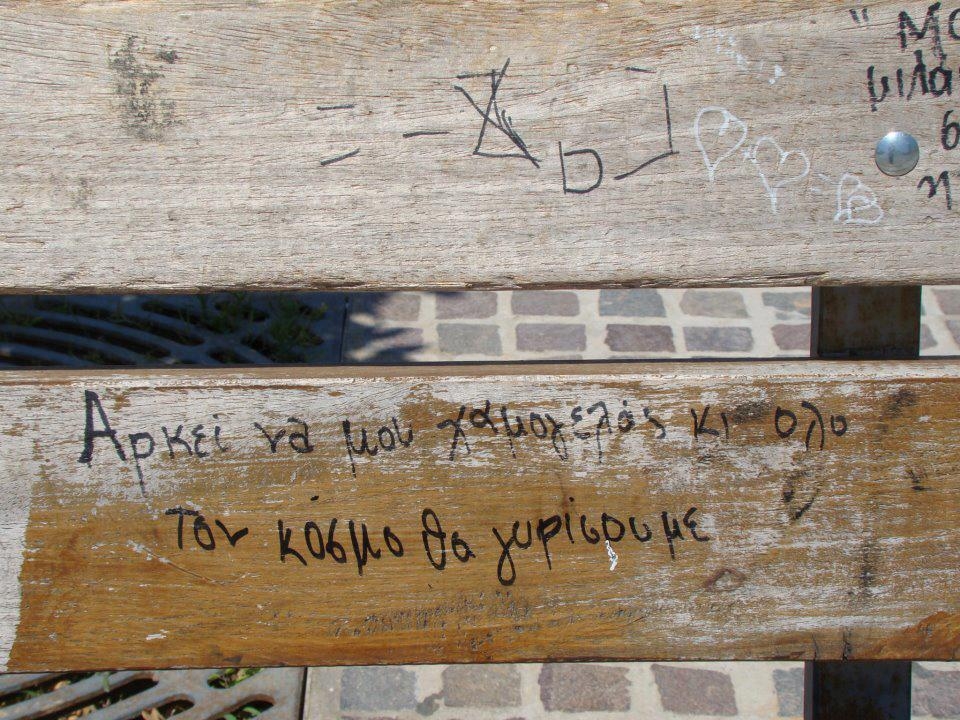 " Μο
μιλα
Αρκεί να μου χαμογελάς κι ολο
τον κόσμο θα γυρίσουμε